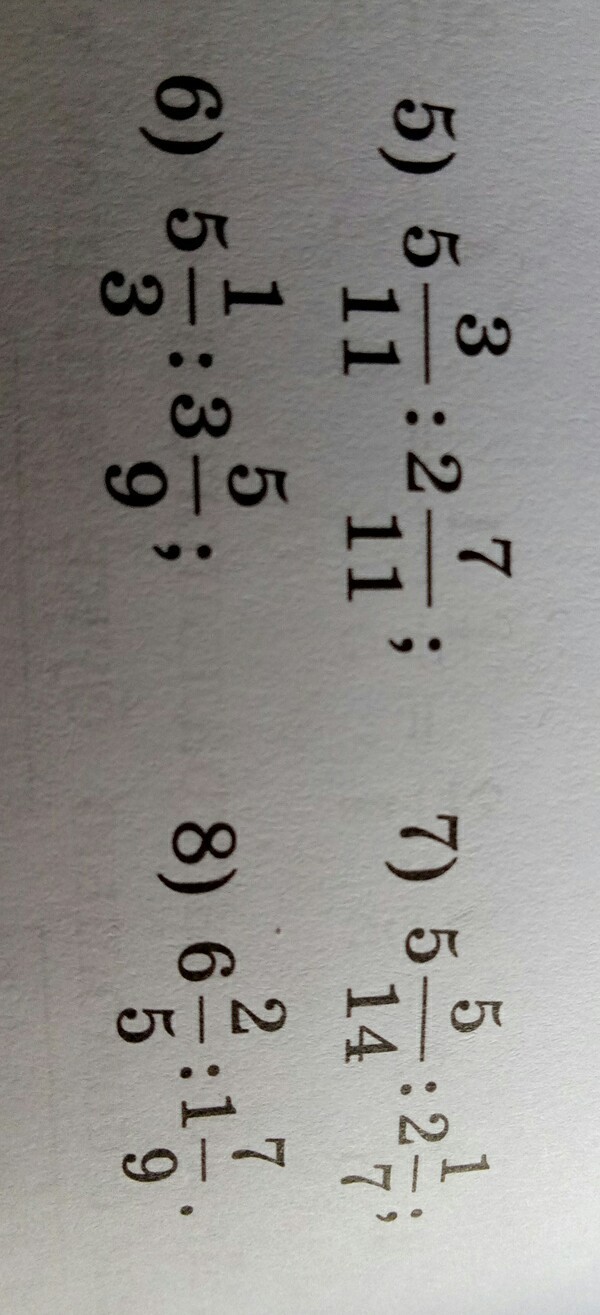 5) 5 3/11 : 2 7/11 ;
6) 5 1/3 : 3 5/9 ;
7) 5 5/14 : 2 1/7 ;
8) 6 2/5 : 1 7/9 .